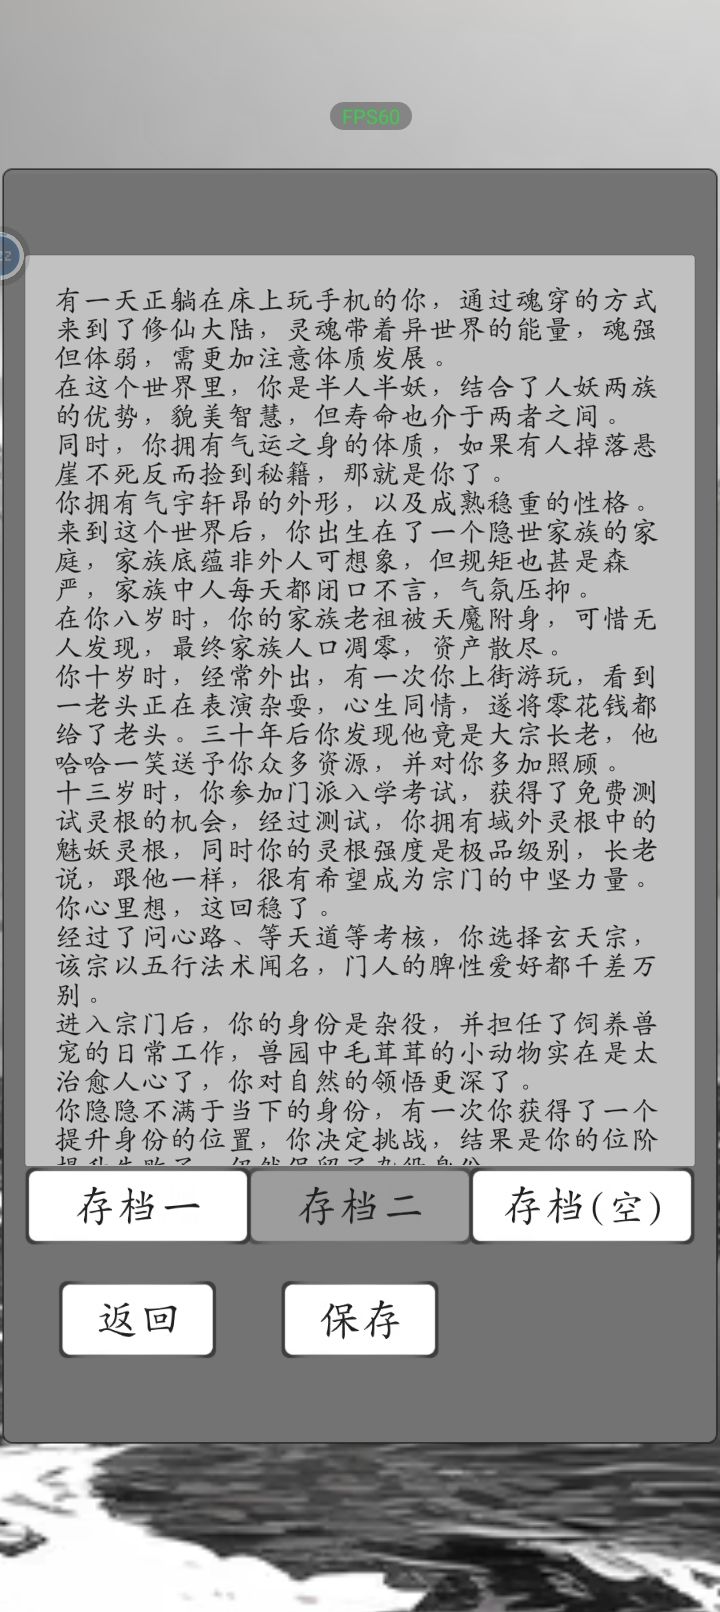 FPS60
zz
有一天正躺在床上玩手机的你，通过魂穿的方式
来到了修仙大陆，灵魂带着异世界的能量，魂强
但体弱，需更加注意体质发展。
在这个世界里，你是半人半妖，结合了人妖两族
的优势，貌美智慧，但寿命也介于两者之间。
同时，你拥有气运之身的体质，如果有人掉落悬
崖不死反而捡到秘籍，那就是你了。
你拥有气宇轩昂的外形，以及成熟稳重的性格。
来到这个世界后，你出生在了一个隐世家族的家
庭，家族底蕴非外人可想象，但规矩也甚是森
严，家族中人每天都闭口不言，气氛压抑。
在你八岁时，你的家族老祖被天魔附身，可惜无
人发现，最终家族人口凋零，资产散尽。
你十岁时，经常外出，有一次你上街游玩，看到
一老头正在表演杂耍，心生同情，遂将零花钱都
给了老头。三十年后你发现他竟是大宗长老，他
哈哈一笑送予你众多资源，并对你多加照顾。
十三岁时，你参加门派入学考试，获得了免费测
试灵根的机会，经过测试，你拥有域外灵根中的
魅妖灵根，同时你的灵根强度是极品级别，长老
说，跟他一样，很有希望成为宗门的中坚力量。
你心里想，这回稳了。
经过了问心路、等天道等考核，你选择玄天宗，
该宗以五行法术闻名，门人的脾性爱好都千差万
别。
进入宗门后，你的身份是杂役，并担任了饲养兽
宠的日常工作，兽园中毛茸茸的小动物实在是太
治愈人心了，你对自然的领悟更深了。
你隐隐不满于当下的身份，有一次你获得了一个
提升身份的位置，你决定挑战，结果是你的位阶
提升失败了，仍然保留了杂役身份
存档一
存档二
存档(空)
返回
保存